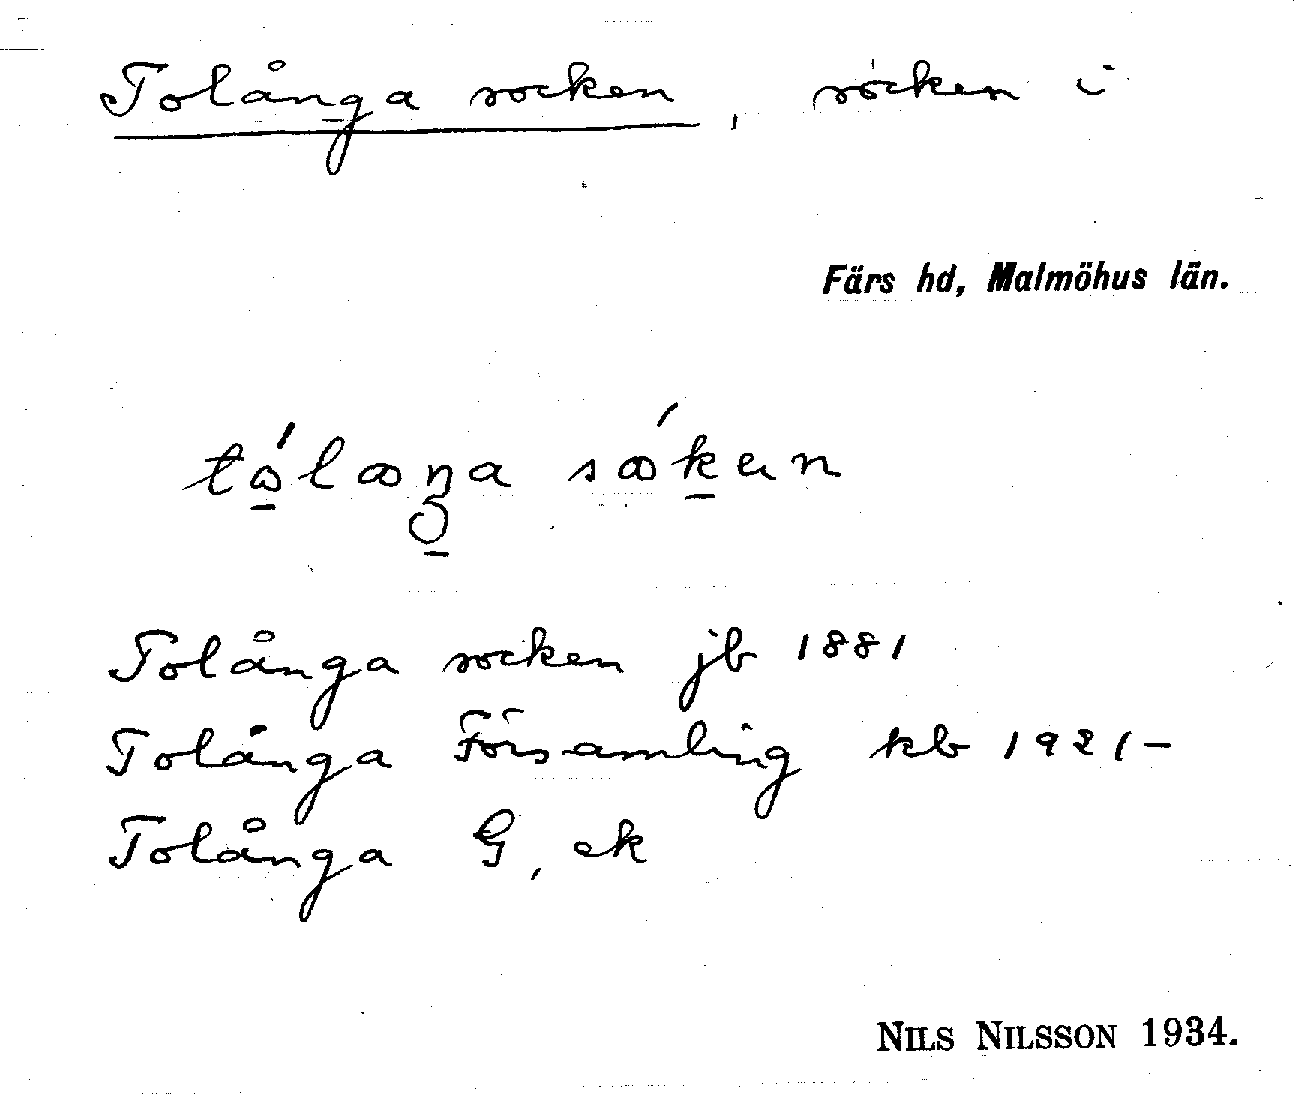 Tolånga socken, socken i
Färs hd, Malmöhus län.
Tolånga socken jb 1881
Tolånga Församling kb 1921–
Tolånga G, ek
NILS NILSSON 1934.